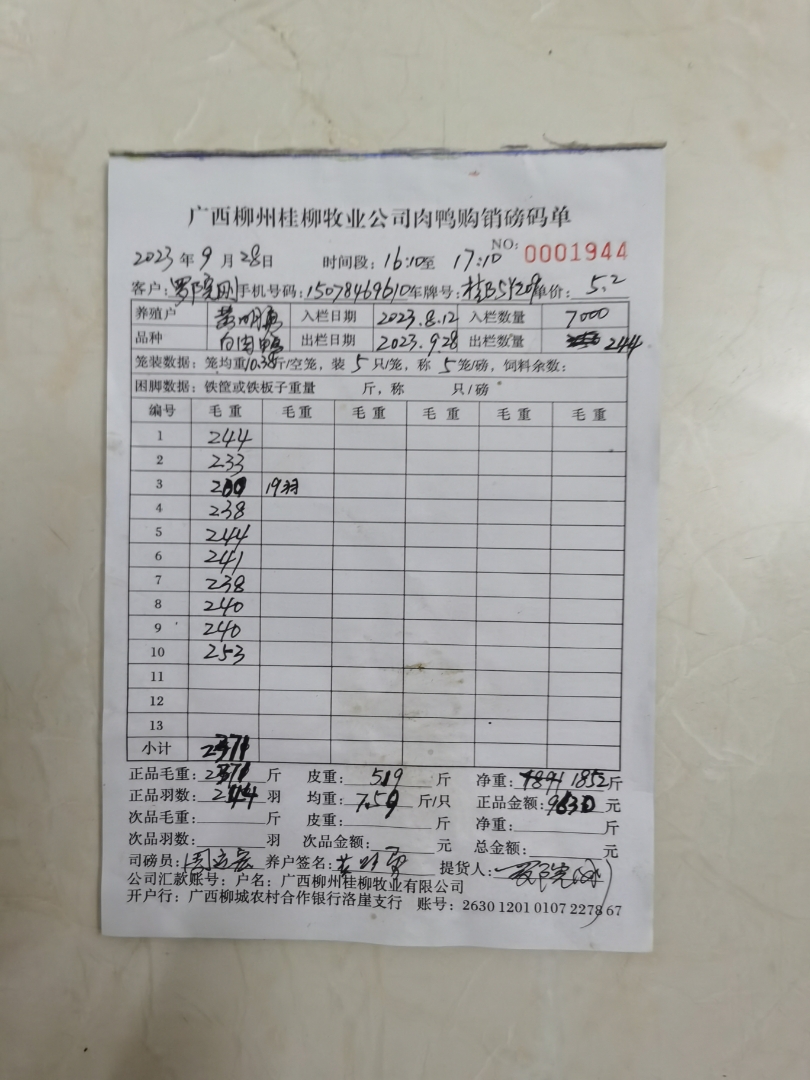 广西柳州桂柳牧业公司肉鸭购销磅码单
NO: 0001944
2023年9月28日 时间段: 16:10至 17:10
客户: 手机号码: 15078469610 车牌号: 单价: 5.2
养殖户 入栏日期 2023.8.12 入栏数量 7000
品种 白肉鸭 出栏日期 2023.9.28 出栏数量 244
笼装数据: 笼均重10.38斤/空笼, 装5只/笼, 称5笼/磅, 饲料余数:
困脚数据: 铁筐或铁板子重量 斤, 称 只/磅
编号 毛重 毛重 毛重 毛重 毛重 毛重
1 244
2 233
3 200 19羽
4 238
5 244
6 241
7 238
8 240
9 240
10 253
11
12
13
小计 2371
正品毛重: 2371 斤 皮重: 519 斤 净重: 1852斤
正品羽数: 244 羽 均重: 7.59 斤/只 正品金额: 9630 元
次品毛重: 斤 皮重: 斤 净重: 斤
次品羽数: 羽 次品金额: 元 总金额: 元
司磅员: 养户签名: 提货人:
公司汇款账号: 户名: 广西柳州桂柳牧业有限公司
开户行: 广西柳城农村合作银行洛崖支行 账号: 2630 1201 0107 2278 67